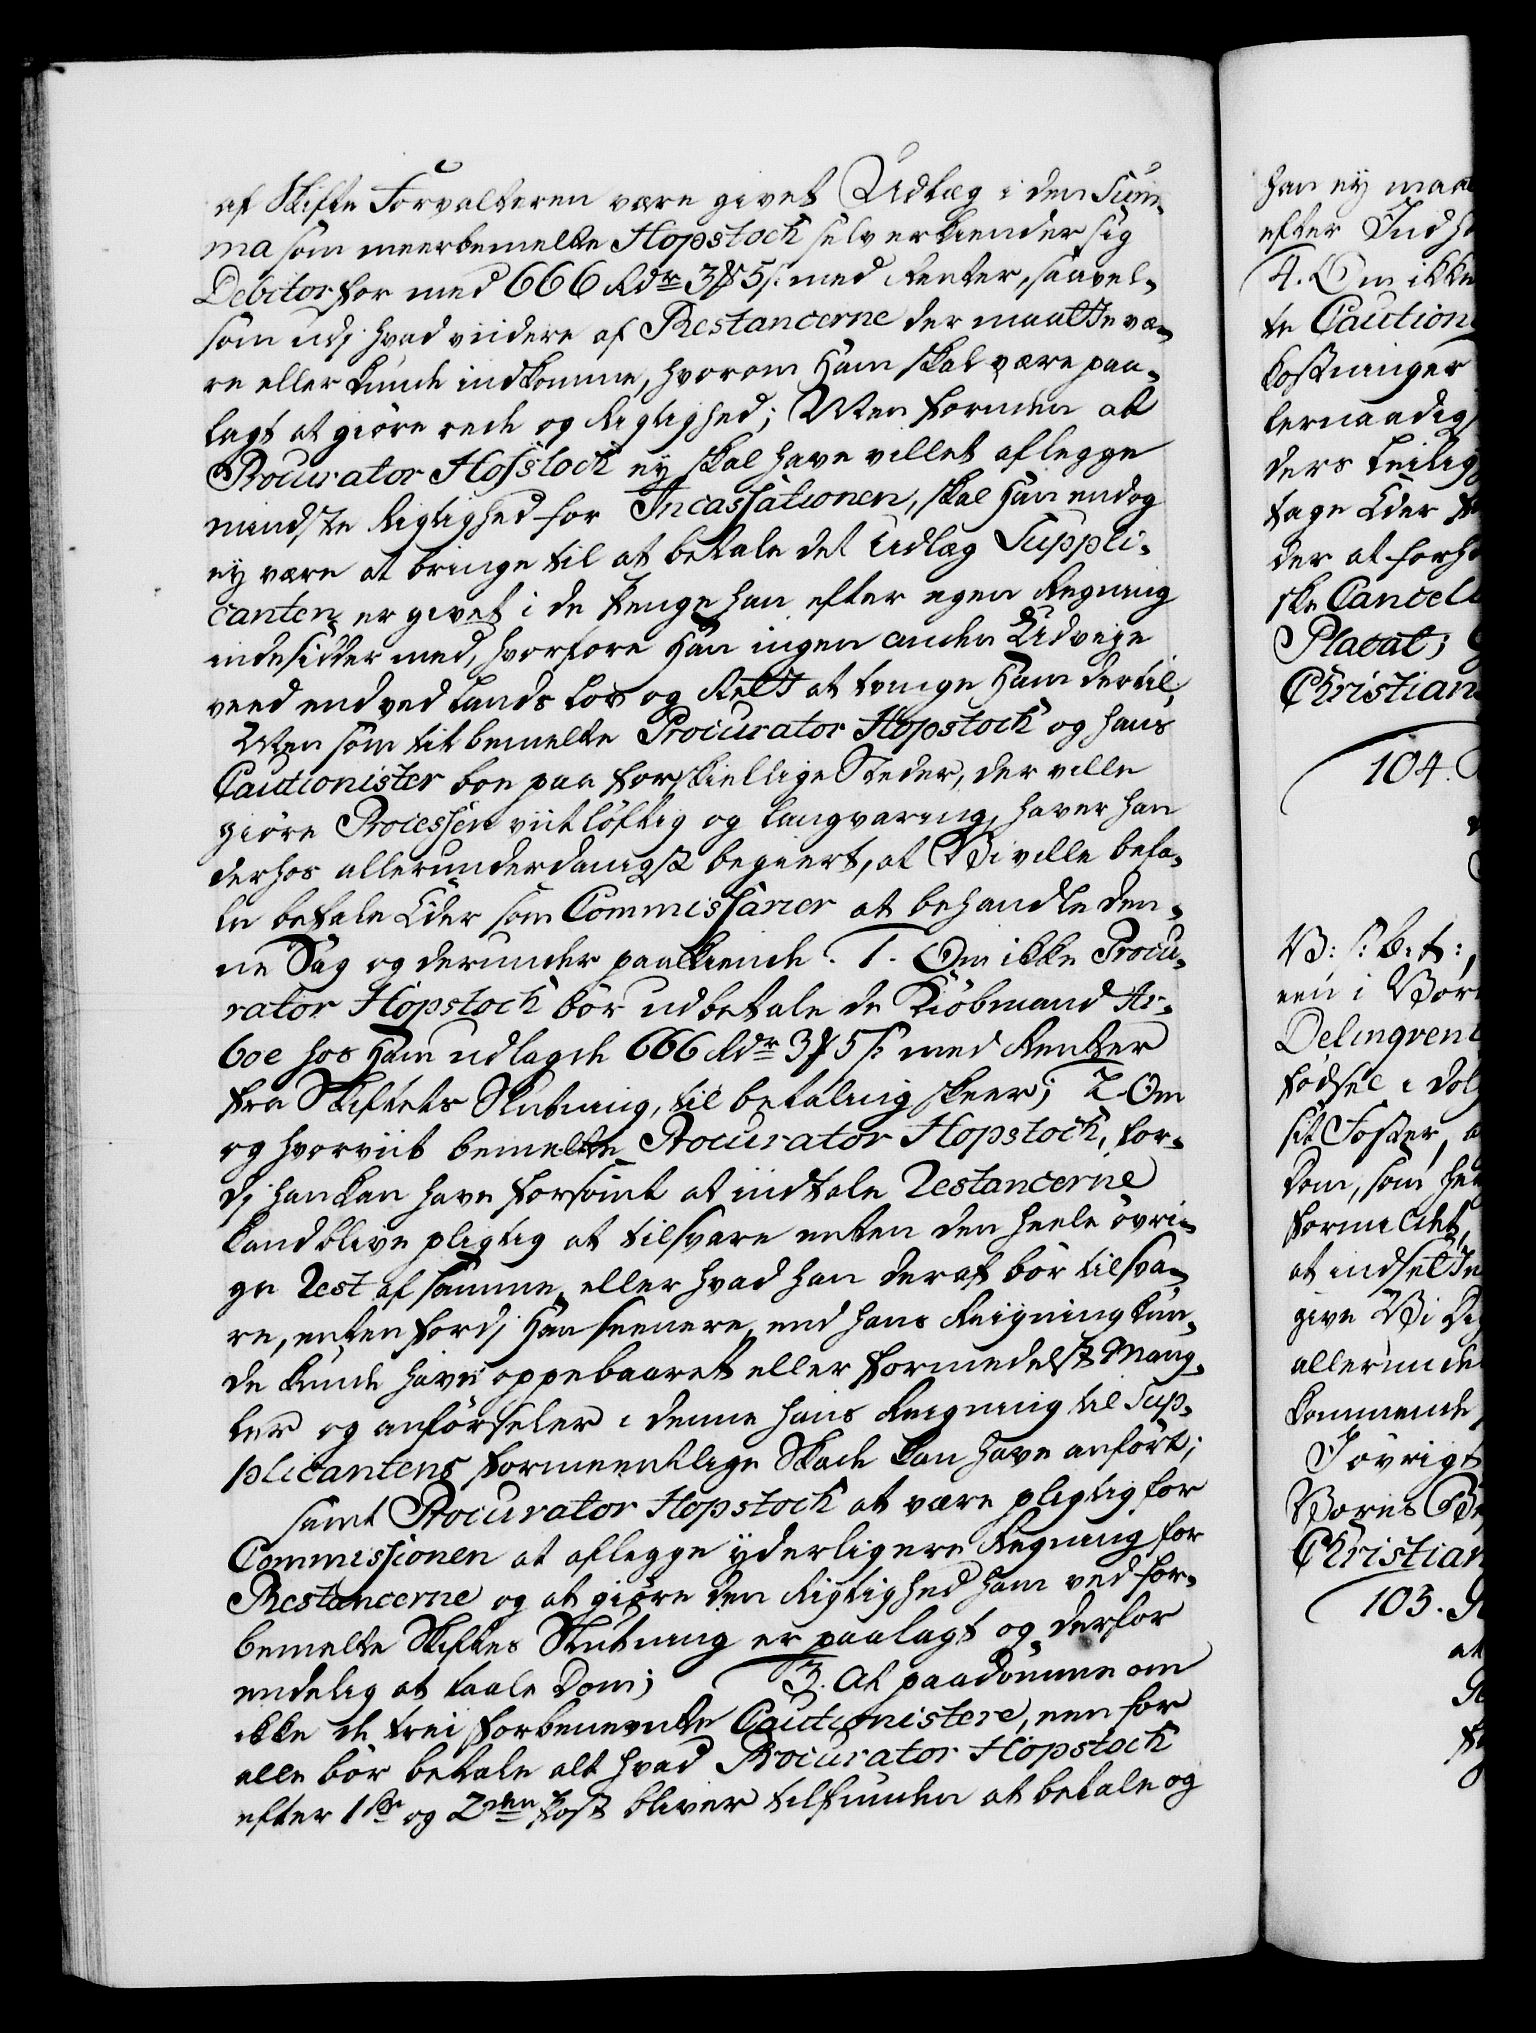 af Skifte Forvalteren være givet Udlæg i den Sum-
ma som meerbemelte Hopstock selv erkiender sig
Debitor for med 666 Rdr 3 ƶ 5 s: med Renter, saavel-
som udj hvad viidere af Restancerne der maatte væ-
re eller kunde indkomme, hvorom Ham skal være paa-
lagt at giøre rede og Rigtighed; Men formen at
Procurator Hofstock ey skal have villet aflegge
mindste Rigtighed for Incassationen, skal Han endog
ey være at bringe til at betale det Udlæg Suppli-
canten er givet i de Penge han efter egen Regning
indesidder med, hvorfore Han ingen anden Udveye
veed end ved Lands Lov og Rett at tvinge Ham dertil;
Men som titbemelte Procurator Hopstock og hans
Cautionister boe paa forskiellige Steder, der ville
giøre Processen viitløftig og langvaring, haver han
derhos allerunderdanigst begiert, at Vi ville befa-
le befale Eder som Commissarier at behandle den-
ne Sag og derunder paakiende. 1. Om ikke Procu-
rator Hopstock bør udbetale de Kiøbmand Ar-
boe hos Ham udlagde 666 Rdr 3 ƶ 5 s: med Renter
fra Skiftets Slutning, til betaling skeer; 2. Om
og hvorviit bemelte Procurator Hopstock, for-
dj han kan have forsømt at indtale Restancerne
kand blive pligtig at tilsvare enten den heele øvri-
ge Rest af samme, eller hvad han deraf bør tilsva-
re, enten fordj Han seenere, end hans Reigning kun-
de kunde have oppebaaret eller formedelst Mang-
ler og anførseler i denne hans Reigning til Sup-
plicantens formeentlige Skade kan have anført;
samt Procurator Hopstock at være pligtig for
Commissionen at aflegge yderligere Regning for
Restancerne og at giøre den Rigtighed ham ved for-
bemelte Skiftes Slutning er paalagt og derfor
endelig at taale Dom; 3. At paadømme om
ikke de trei forbenevnte Cautionistere, een for
alle bør betale alt hvad Procurator Hopstock
efter 1ste og 2den Post bliver tilfunden at betale og
han ey maa
efter Indh
4. Om ikke
te Caution
kostninger
lernaadigs
ders
tage Eder
der at forh
ske Cancell
Placat;
Christian
104.
V: s: b: t:,
een i Bor
Delinqvent
fødsel i dol
sit Foster, a
Dom, som he
formeldet,
at indsette
give Vi
allerunde
kommende
Jøvrigt
Vores
Christian
105.
at